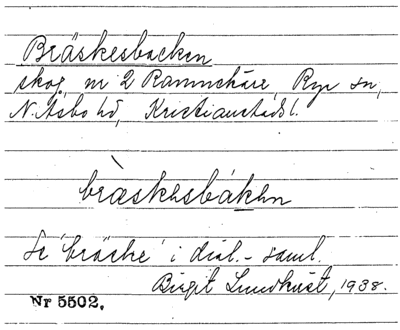 Bräskesbacken
skog, nr 2 Rammekärr, Rya sn,
N. Åsbo hd, Kristianstads l.
bræskesbákn
Se 'bräske' i dial.-saml.
Birgit Lundkvist, 1938.
Nr 5502.